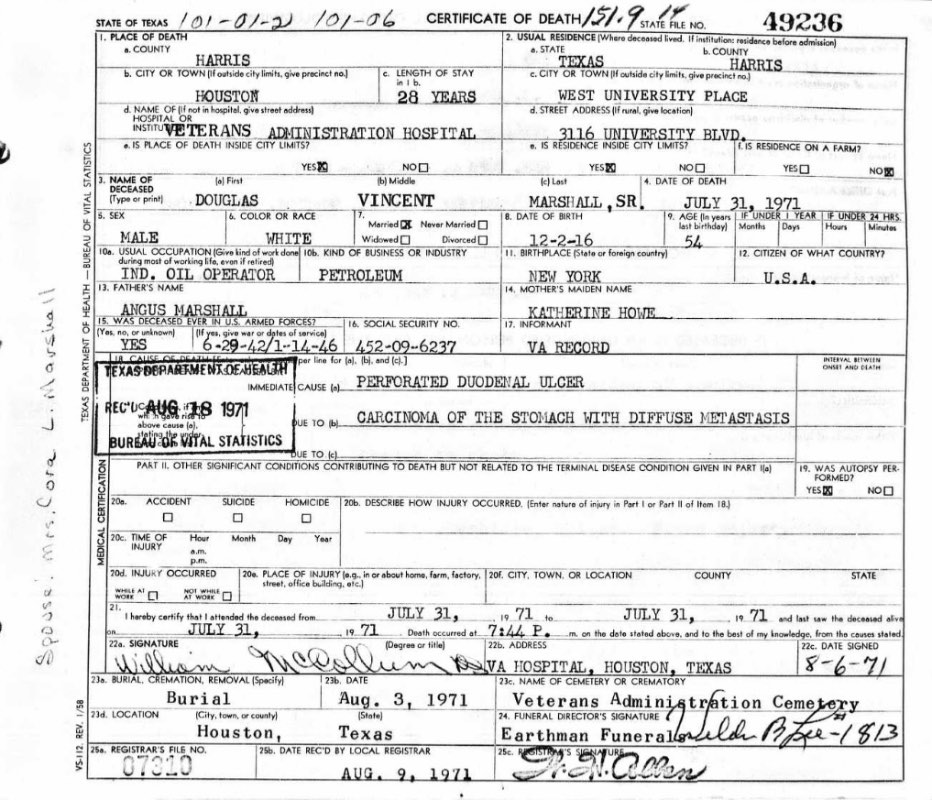 STATE OF TEXAS 101-01-2 101-06 CERTIFICATE OF DEATH 151.9 14 STATE FILE NO. 49236
1. PLACE OF DEATH
a. COUNTY
HARRIS
2. USUAL RESIDENCE (Where deceased lived. If institution: residence before admission)
a. STATE b. COUNTY
TEXAS HARRIS
b. CITY OR TOWN (If outside city limits, give precinct no.) c. LENGTH OF STAY in 1 b.
HOUSTON 28 YEARS
c. CITY OR TOWN (If outside city limits, give precinct no.)
WEST UNIVERSITY PLACE
d. NAME OF (If not in hospital, give street address)
HOSPITAL OR
VETERANS ADMINISTRATION HOSPITAL
d. STREET ADDRESS (If rural, give location)
3116 UNIVERSITY BLVD.
e. IS PLACE OF DEATH INSIDE CITY LIMITS?
YES NO
e. IS RESIDENCE INSIDE CITY LIMITS? f. IS RESIDENCE ON A FARM?
YES NO YES NO
3. NAME OF DECEASED (Type or print) (a) First (b) Middle (c) Last 4. DATE OF DEATH
DOUGLAS VINCENT MARSHALL, SR. JULY 31, 1971
5. SEX 6. COLOR OR RACE 7. Married Never Married Widowed Divorced 8. DATE OF BIRTH 9. AGE (In years last birthday) IF UNDER 1 YEAR Months Days IF UNDER 24 HRS. Hours Minutes
MALE WHITE 12-2-16 54
10a. USUAL OCCUPATION (Give kind of work done during most of working life, even if retired) 10b. KIND OF BUSINESS OR INDUSTRY 11. BIRTHPLACE (State or foreign country) 12. CITIZEN OF WHAT COUNTRY?
IND. OIL OPERATOR PETROLEUM NEW YORK U.S.A.
13. FATHER'S NAME 14. MOTHER'S MAIDEN NAME
ANGUS MARSHALL KATHERINE HOWE
15. WAS DECEASED EVER IN U.S. ARMED FORCES? 16. SOCIAL SECURITY NO. 17. INFORMANT
(Yes, no, or unknown) (If yes, give war or dates of service)
YES 6-29-42/1-14-46 452-09-6237 VA RECORD
18. CAUSE OF DEATH per line for (a), (b), and (c).] INTERVAL BETWEEN ONSET AND DEATH
TEXAS DEPARTMENT OF HEALTH
REC'D AUG 18 1971
BUREAU OF VITAL STATISTICS
above cause (a), stating the under
IMMEDIATE CAUSE (a) PERFORATED DUODENAL ULCER
DUE TO (b) CARCINOMA OF THE STOMACH WITH DIFFUSE METASTASIS
DUE TO (c)
PART II. OTHER SIGNIFICANT CONDITIONS CONTRIBUTING TO DEATH BUT NOT RELATED TO THE TERMINAL DISEASE CONDITION GIVEN IN PART I(a) 19. WAS AUTOPSY PERFORMED?
YES NO
20a. ACCIDENT SUICIDE HOMICIDE 20b. DESCRIBE HOW INJURY OCCURRED. (Enter nature of injury in Part I or Part II of Item 18.)
20c. TIME OF INJURY Hour Month Day Year
a.m.
p.m.
20d. INJURY OCCURRED 20e. PLACE OF INJURY (e.g., in or about home, farm, factory, street, office building, etc.) 20f. CITY, TOWN, OR LOCATION COUNTY STATE
WHILE AT WORK NOT WHILE AT WORK
21. I hereby certify that I attended the deceased from JULY 31, 1971 to JULY 31, 1971 and last saw the deceased alive
on JULY 31, 1971 Death occurred at 7:44 P. m. on the date stated above, and to the best of my knowledge, from the causes stated.
22a. SIGNATURE (Degree or title) 22b. ADDRESS 22c. DATE SIGNED
William McCollum VA HOSPITAL, HOUSTON, TEXAS 8-6-71
23a. BURIAL, CREMATION, REMOVAL (Specify) 23b. DATE 23c. NAME OF CEMETERY OR CREMATORY
Burial Aug. 3, 1971 Veterans Administration Cemetery
23d. LOCATION (City, town, or county) (State) 24. FUNERAL DIRECTOR'S SIGNATURE
Houston, Texas Earthman Funerals #1813
25a. REGISTRAR'S FILE NO. 25b. DATE REC'D BY LOCAL REGISTRAR 25c. REGISTRAR'S SIGNATURE
07310 AUG. 9, 1971
TEXAS DEPARTMENT OF HEALTH — BUREAU OF VITAL STATISTICS
MEDICAL CERTIFICATION
VS-112 REV. 1/58
Spouse: Mrs. Cora L. Marshall